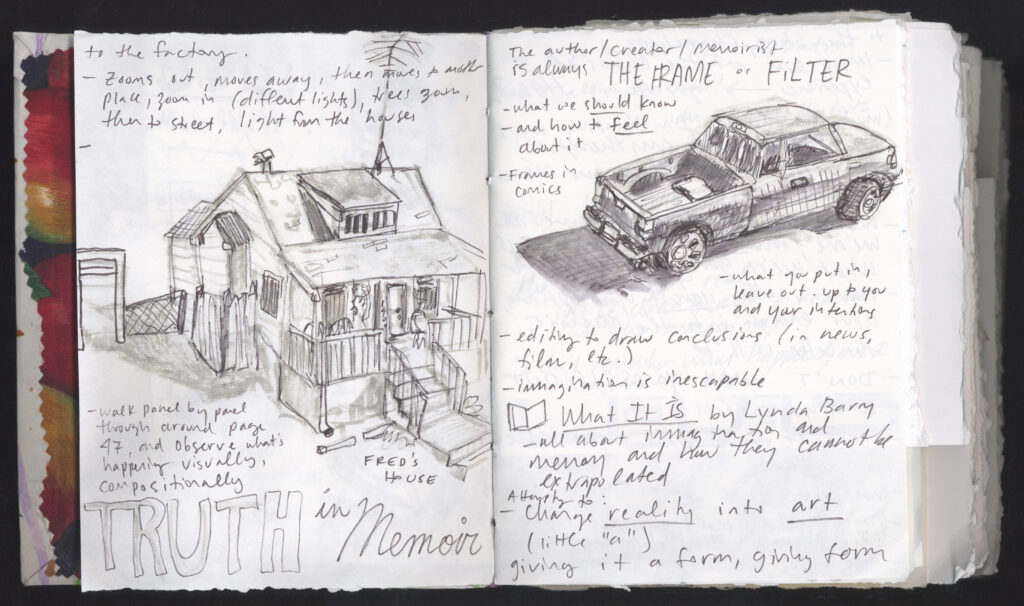 to the factory.
- Zooms out, moves away, then moves to another
place, zoom in (diffent lights), trees zoom,
then to street, light from the houses
-
- walk panel by panel
through around page
47, and observe what's
happening visually,
compositionally
FRED'S
HOUSE
TRUTH in Memoir
The author/creator/memoirist
is always THE FRAME or FILTER
- what we should know
- and how to feel
about it
- Frames in
comics
- what you put in,
leave out. up to you
and your intentions
- editing to draw conclusions (in news,
film, etc.)
- immagination is inescapable
What It IS by Lynda Barry
- all about immagination and
memory and how they cannot be
extrapolated
to:
- Change reality into art
(little "a")
giving it a form, giving form